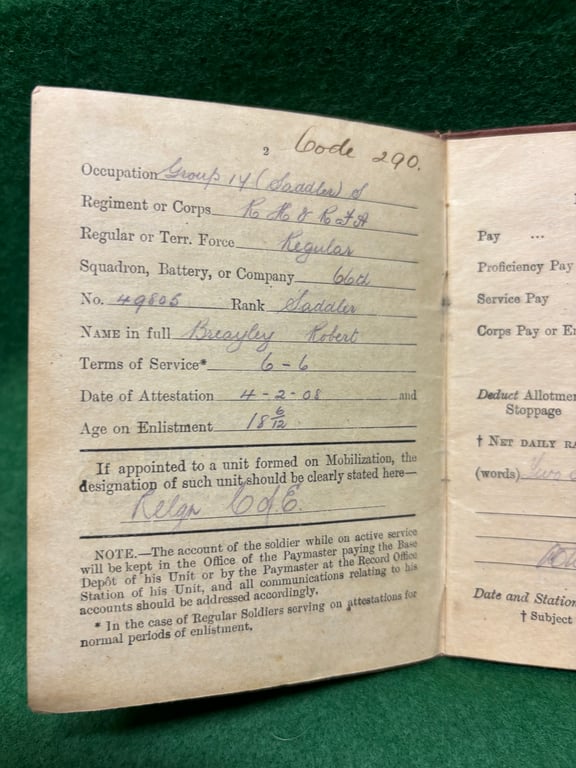 2 Code 290.
Occupation Group 14 (Saddler) S
Regiment or Corps R H & R F A
Regular or Terr. Force Regular
Squadron, Battery, or Company 66th
No. 49605 Rank Saddler
NAME in full Breayley Robert
Terms of Service* 6 - 6
Date of Attestation 4 - 2 - 08 and
Age on Enlistment 18 6/12
If appointed to a unit formed on Mobilization, the
designation of such unit should be clearly stated here—
C of E.
NOTE.—The account of the soldier while on active service
will be kept in the Office of the Paymaster paying the Base
Depôt of his Unit or by the Paymaster at the Record Office
Station of his Unit, and all communications relating to his
accounts should be addressed accordingly.
* In the case of Regular Soldiers serving on attestations for
normal periods of enlistment.
Pay ...
Proficiency Pay
Service Pay
Corps Pay or
Deduct
Stoppage
† NET DAILY
(words) Two
Date and Station
† Subject